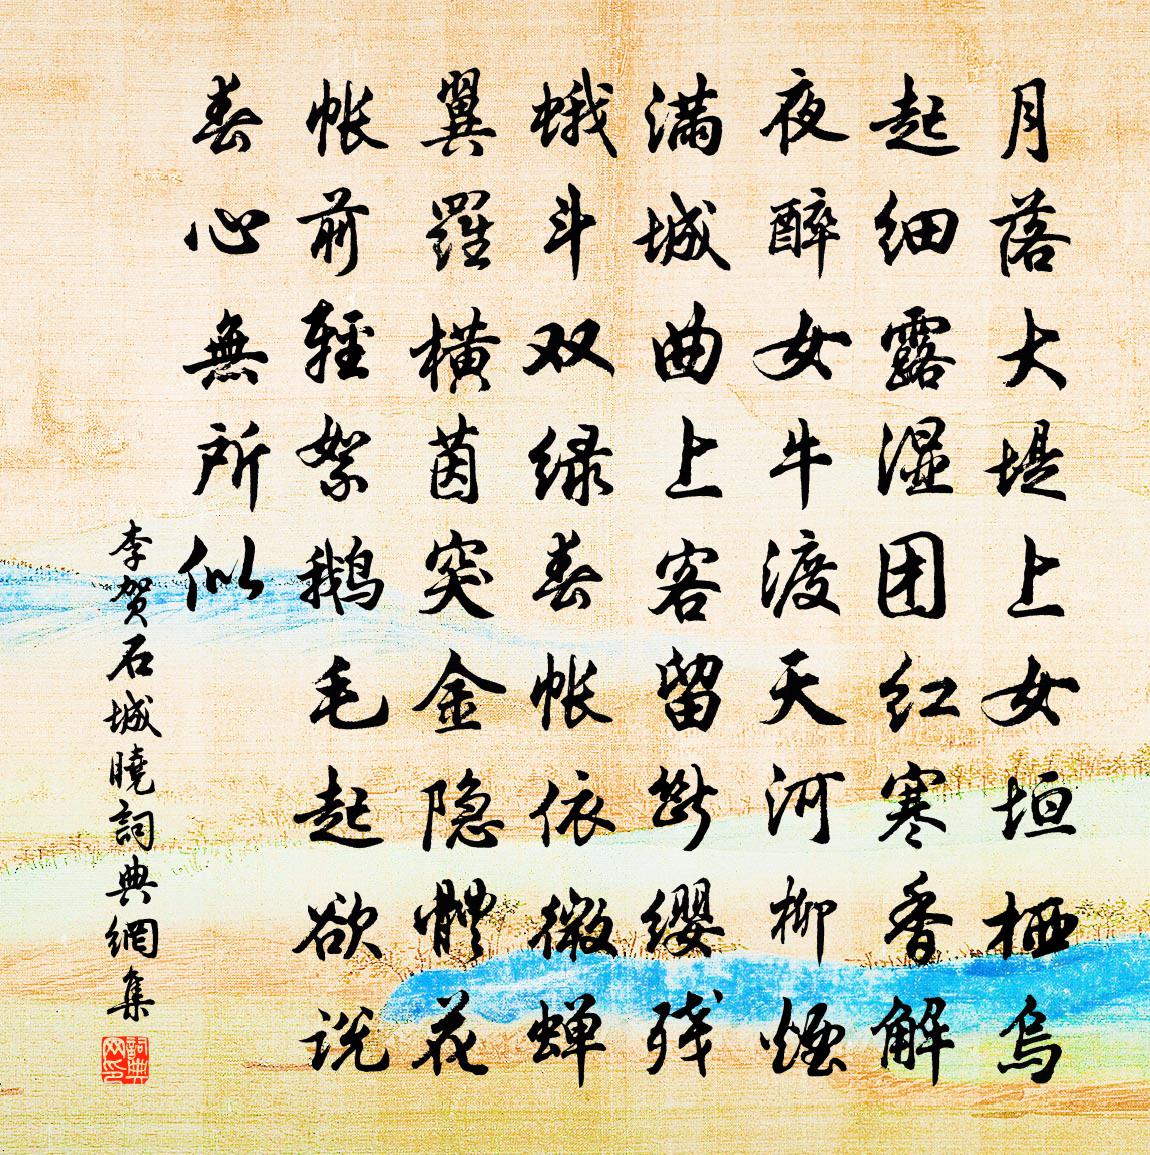 月落大堤上女垣栖烏
起细露湿团红寒香解
夜醉女牛渡天河柳煙
满城曲上客留断缨残
蛾斗双绿春帐依微蝉
翼羅横茵突金隐體花
帐前輕絮鹅毛起欲说
春心無所似
李贺石城曉詞典網集
詞典网印